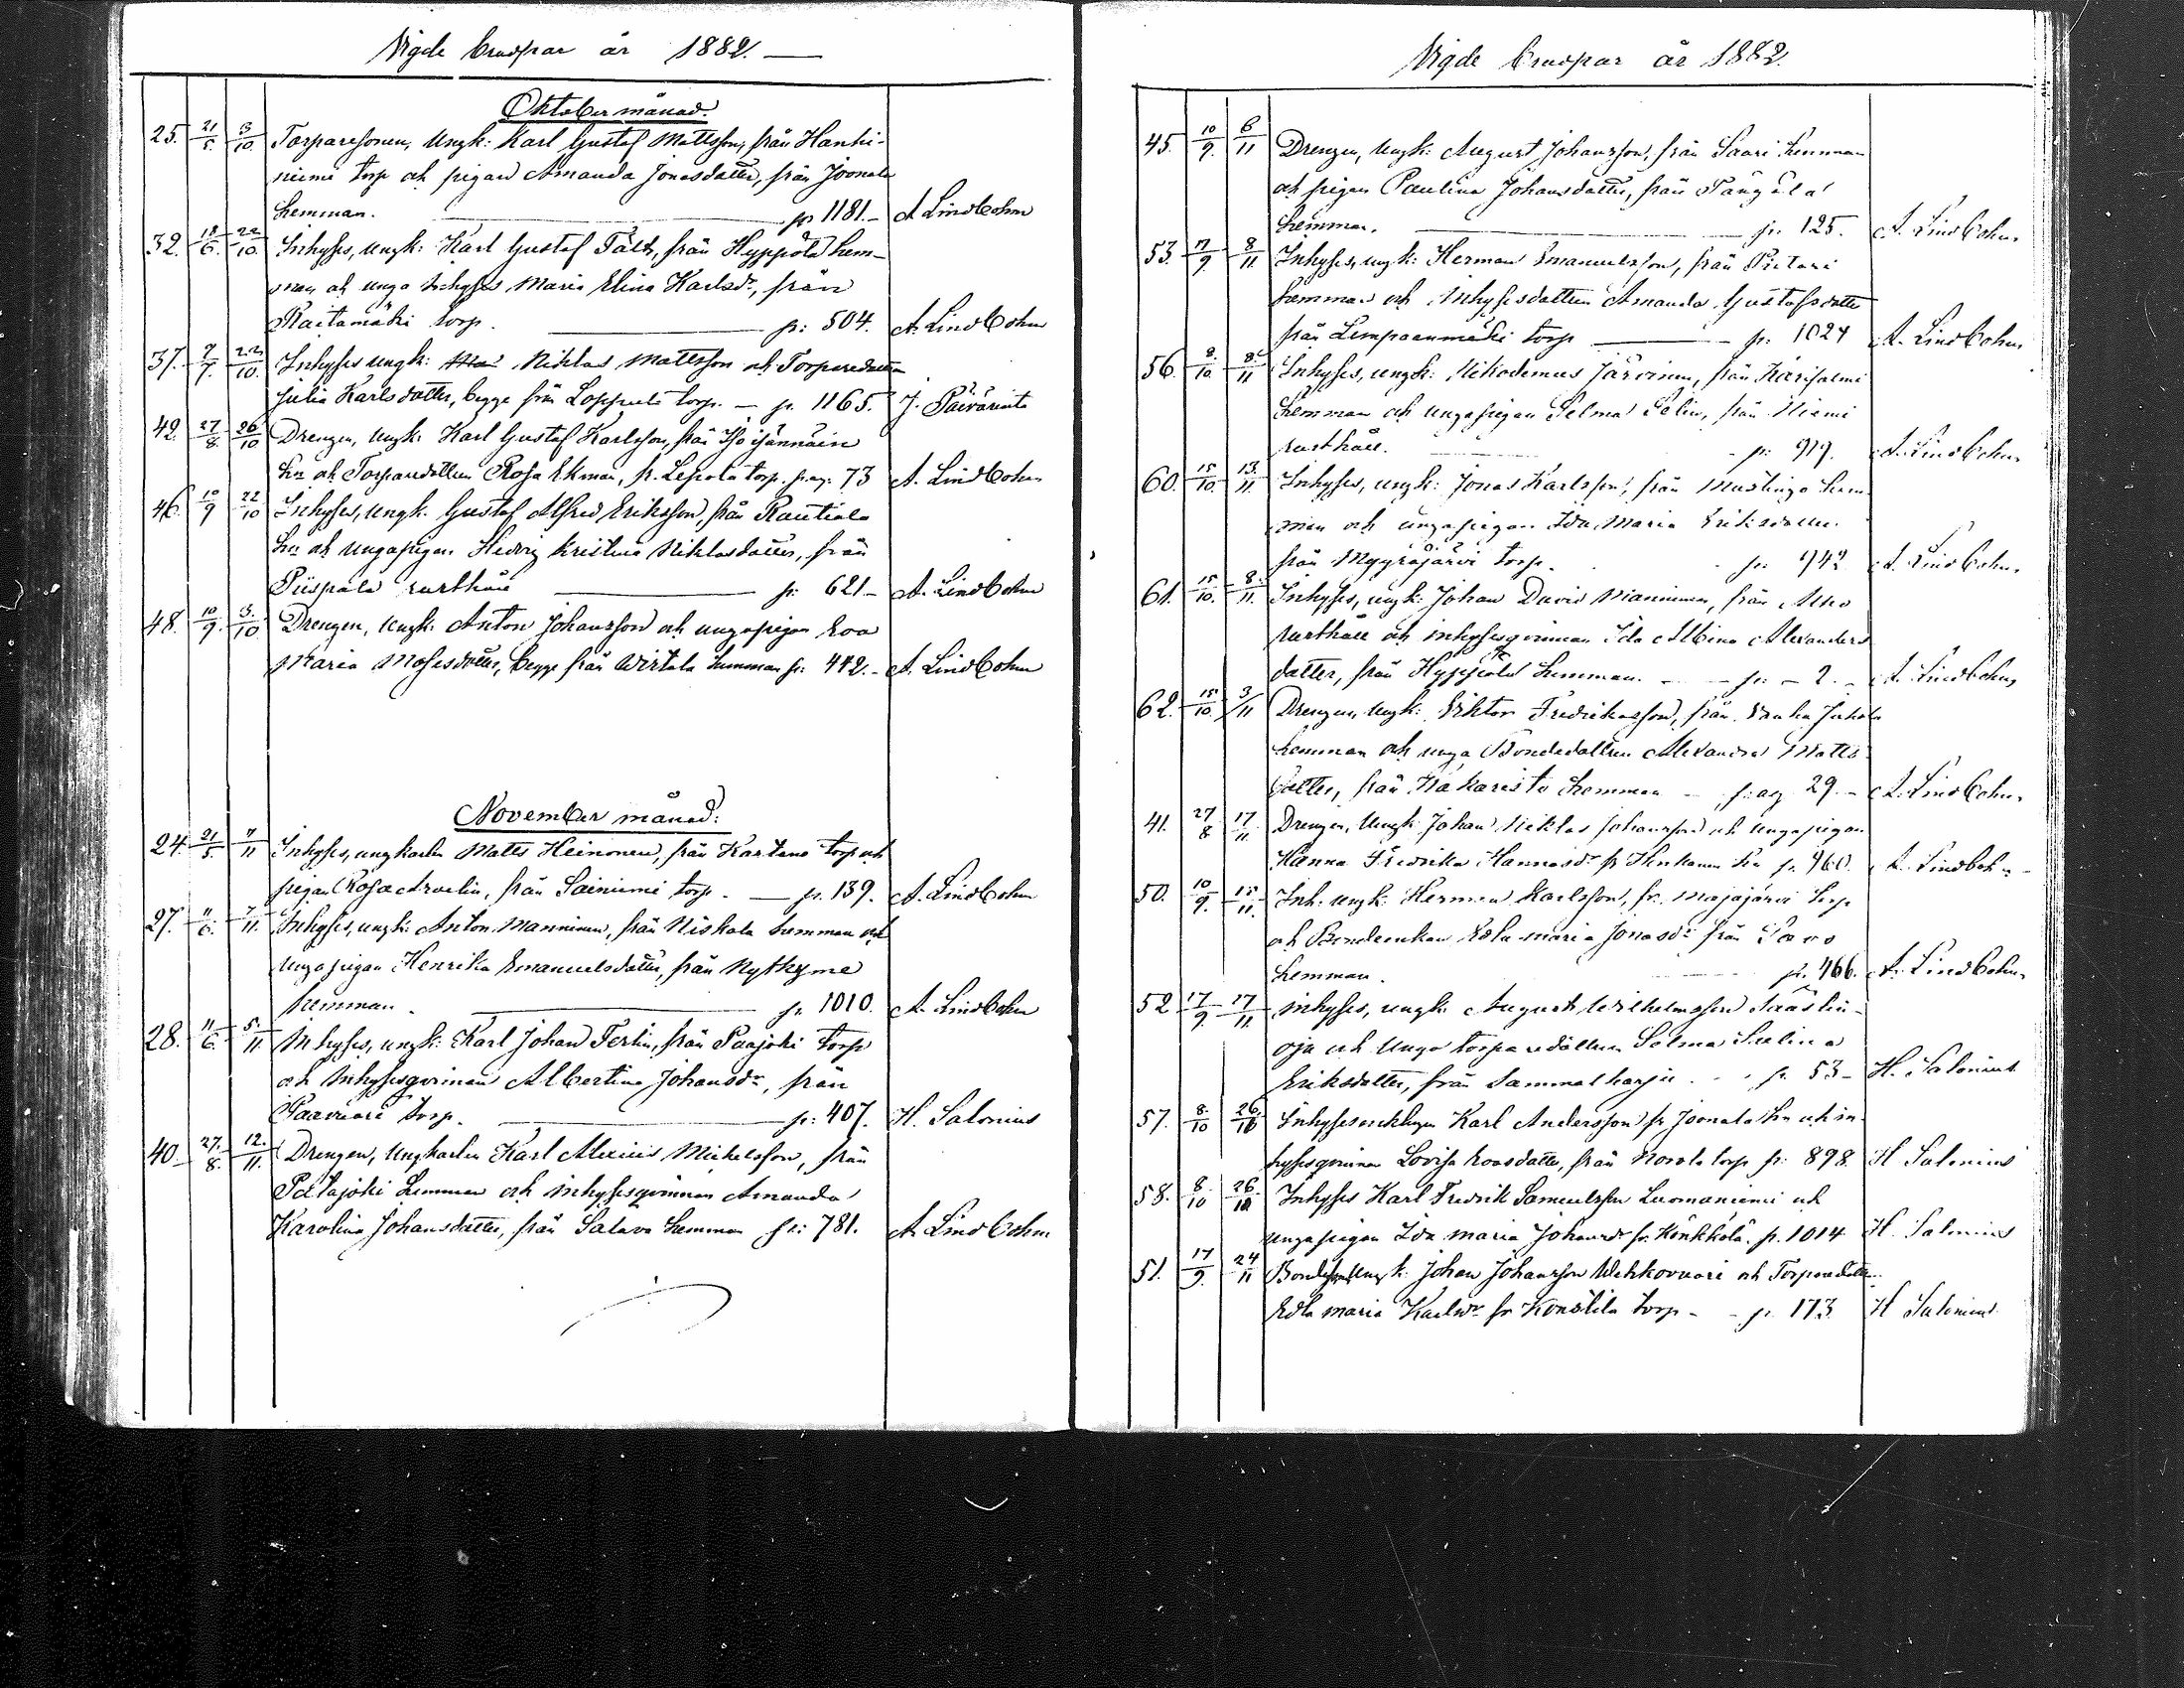 Vigde brudpar år 1882.
Oktober månad.
25. 21/5. 3/10 Torparesonen, Ungk: Karl Gustaf Mattsson, från Hanhi-
niemi torp och pigan Amanda Jonasdatter, från Joonala
hemman. p 1181. A Lindbohm
32. 18/6. 22/10. Inhyses, ungk: Karl Gustaf Fält, från Hyppölä hem-
man och unga inhyses Maria Elina Karlsdr, från
Raitamäki torp. p: 504. A. Lindbohm
37. 7/7. 22/10. Inhyses ungk: Niklas Mattsson och Torparedatter
Julia Karlsdatter, begge från torp. p. 1165. J. Päivärinta
42. 27/8. 26/10 Drengen, Ungk: Karl Gustaf Karlsson, från
hn och Torparedattern Rosa Ekman, fr. Lepola torp. pag. 73 A. Lindbohm
46. 10/9 22/10 Inhyses, ungk. Gustaf Alfred Eriksson, från Rautiala
hn och Unga pigan Hedvig Kristina Niklasdatter, från
Piispala rusthåll p: 621 A. Lindbohm
48. 10/9. 3./10. Drengen, Ungk: Anton Johansson och unga pigan Eva
Maria Mosesdatter, begge från Wirtala hemman p: 442. A. Lindbohm
November månad:
24. 21/5. 7/11 Inhyses, ungkarlen Matts Heinonen, från Kartano torp och
pigan Rosa Arvelin, från Sainiemi torp. p. 139. A. Lindbohm
27. 11/6. 7/11. Inhyses, ungk: Anton Manninen, från Niskala hemman och
Unga pigan Henrika Emanuelsdatter, från Nythyme
hemman. p. 1010. A. Lindbohm
28. 11/6. 5./11. Inhyses, ungk: Karl Johan Ferlin, från Paajoki torp
och Inhysesqvinnan Albertina Johansdr, från
Paavuori torp. p: 407. H. Salonius
40. 27./8. 12./11. Drengen, Ungkarlen Karl Alexius Mickelsson, från
Patajoki hemman och inhysesqvinnan Amanda
Karolina Johansdatter, från Salava hemman p: 781. A. Lindbohm
Vigde brudpar år 1882.
45. 10/9. 6/11 Drengen, Ungk: August Johansson, från Saari hemman
och pigan Paulina Johansdatter, från
hemman. p. 125. A. Lindbohm
53. 17/9. 8/11. Inhyses, ungk: Herman Emanuelsson, från Pietari
hemman och Inhysesdattern Amanda Gustafsdatter
från Lempaanmäki torp p. 1024 A. Lindbohm
56. 8./10. 8./11 Inhyses, ungk: Nikodemus Järvinen, från Karisalmi
hemman och unga pigan Selma Felin, från Niemi
rusthåll. p: 919. A. Lindbohm
60. 15/10. 13./11. Inhyses, ungk: Jonas Karlsson, från hem-
man och unga pigan Ida Maria Eriksdatter
från Myyräjärvi torp. p: 942 A. Lindbohm
61. 15/10. 8./11. Inhyses, ungk: Johan David Manninen, från
rusthåll och inhysesqvinnan Ida Albina Alexanders
datter, från Hyppiölä hemman. p: 2. A. Lindbohm
62. 15/10. 3/11 Drengen, Ungk: Viktor Fredriksson, från Vanha Jukola
hemman och unga Bondedattern Alexandra Matts
datter, från Kakaristo hemman pag 29. A. Lindbohm
41. 27/8 17/11. Drengen, Ungk: Johan Niklas Johansson och Unga pigan
Hanna Fredrika hn p. 960. A. Lindbohm
50. 10/9. 15/11. Inh. ungk: Herman Karlsson, fr. Majajärvi torp
och Bondeenkan Edla Maria Jonasdr från
hemman. p. 466. A. Lindbohm
52 17/9. 17/11. Inhyses, ungk: August Wilhelmsson
oja och Unga torparedattern Selma
Eriksdatter, från Sammalharju p. 53 H. Salonius
57. 8./10 26./10 Inhysesenklingen Karl Andersson fr Joonala hn och in-
hysesqvinnan Lovisa datter, från torp p: 898 H Salonius
58. 8./10 26./10 Inhyses Karl Fredrik Samuelsson Luomaniemi och
unga pigan Ida Maria Johansdr fr. Könkkölä p. 1014 H Salonius
51. 17/9. 24/11 Bondeson Ungk: Johan Johansson Wehkovuori och Torparedatter
Edla Maria Karlsdr fr Konstila torp p. 173 H Salonius